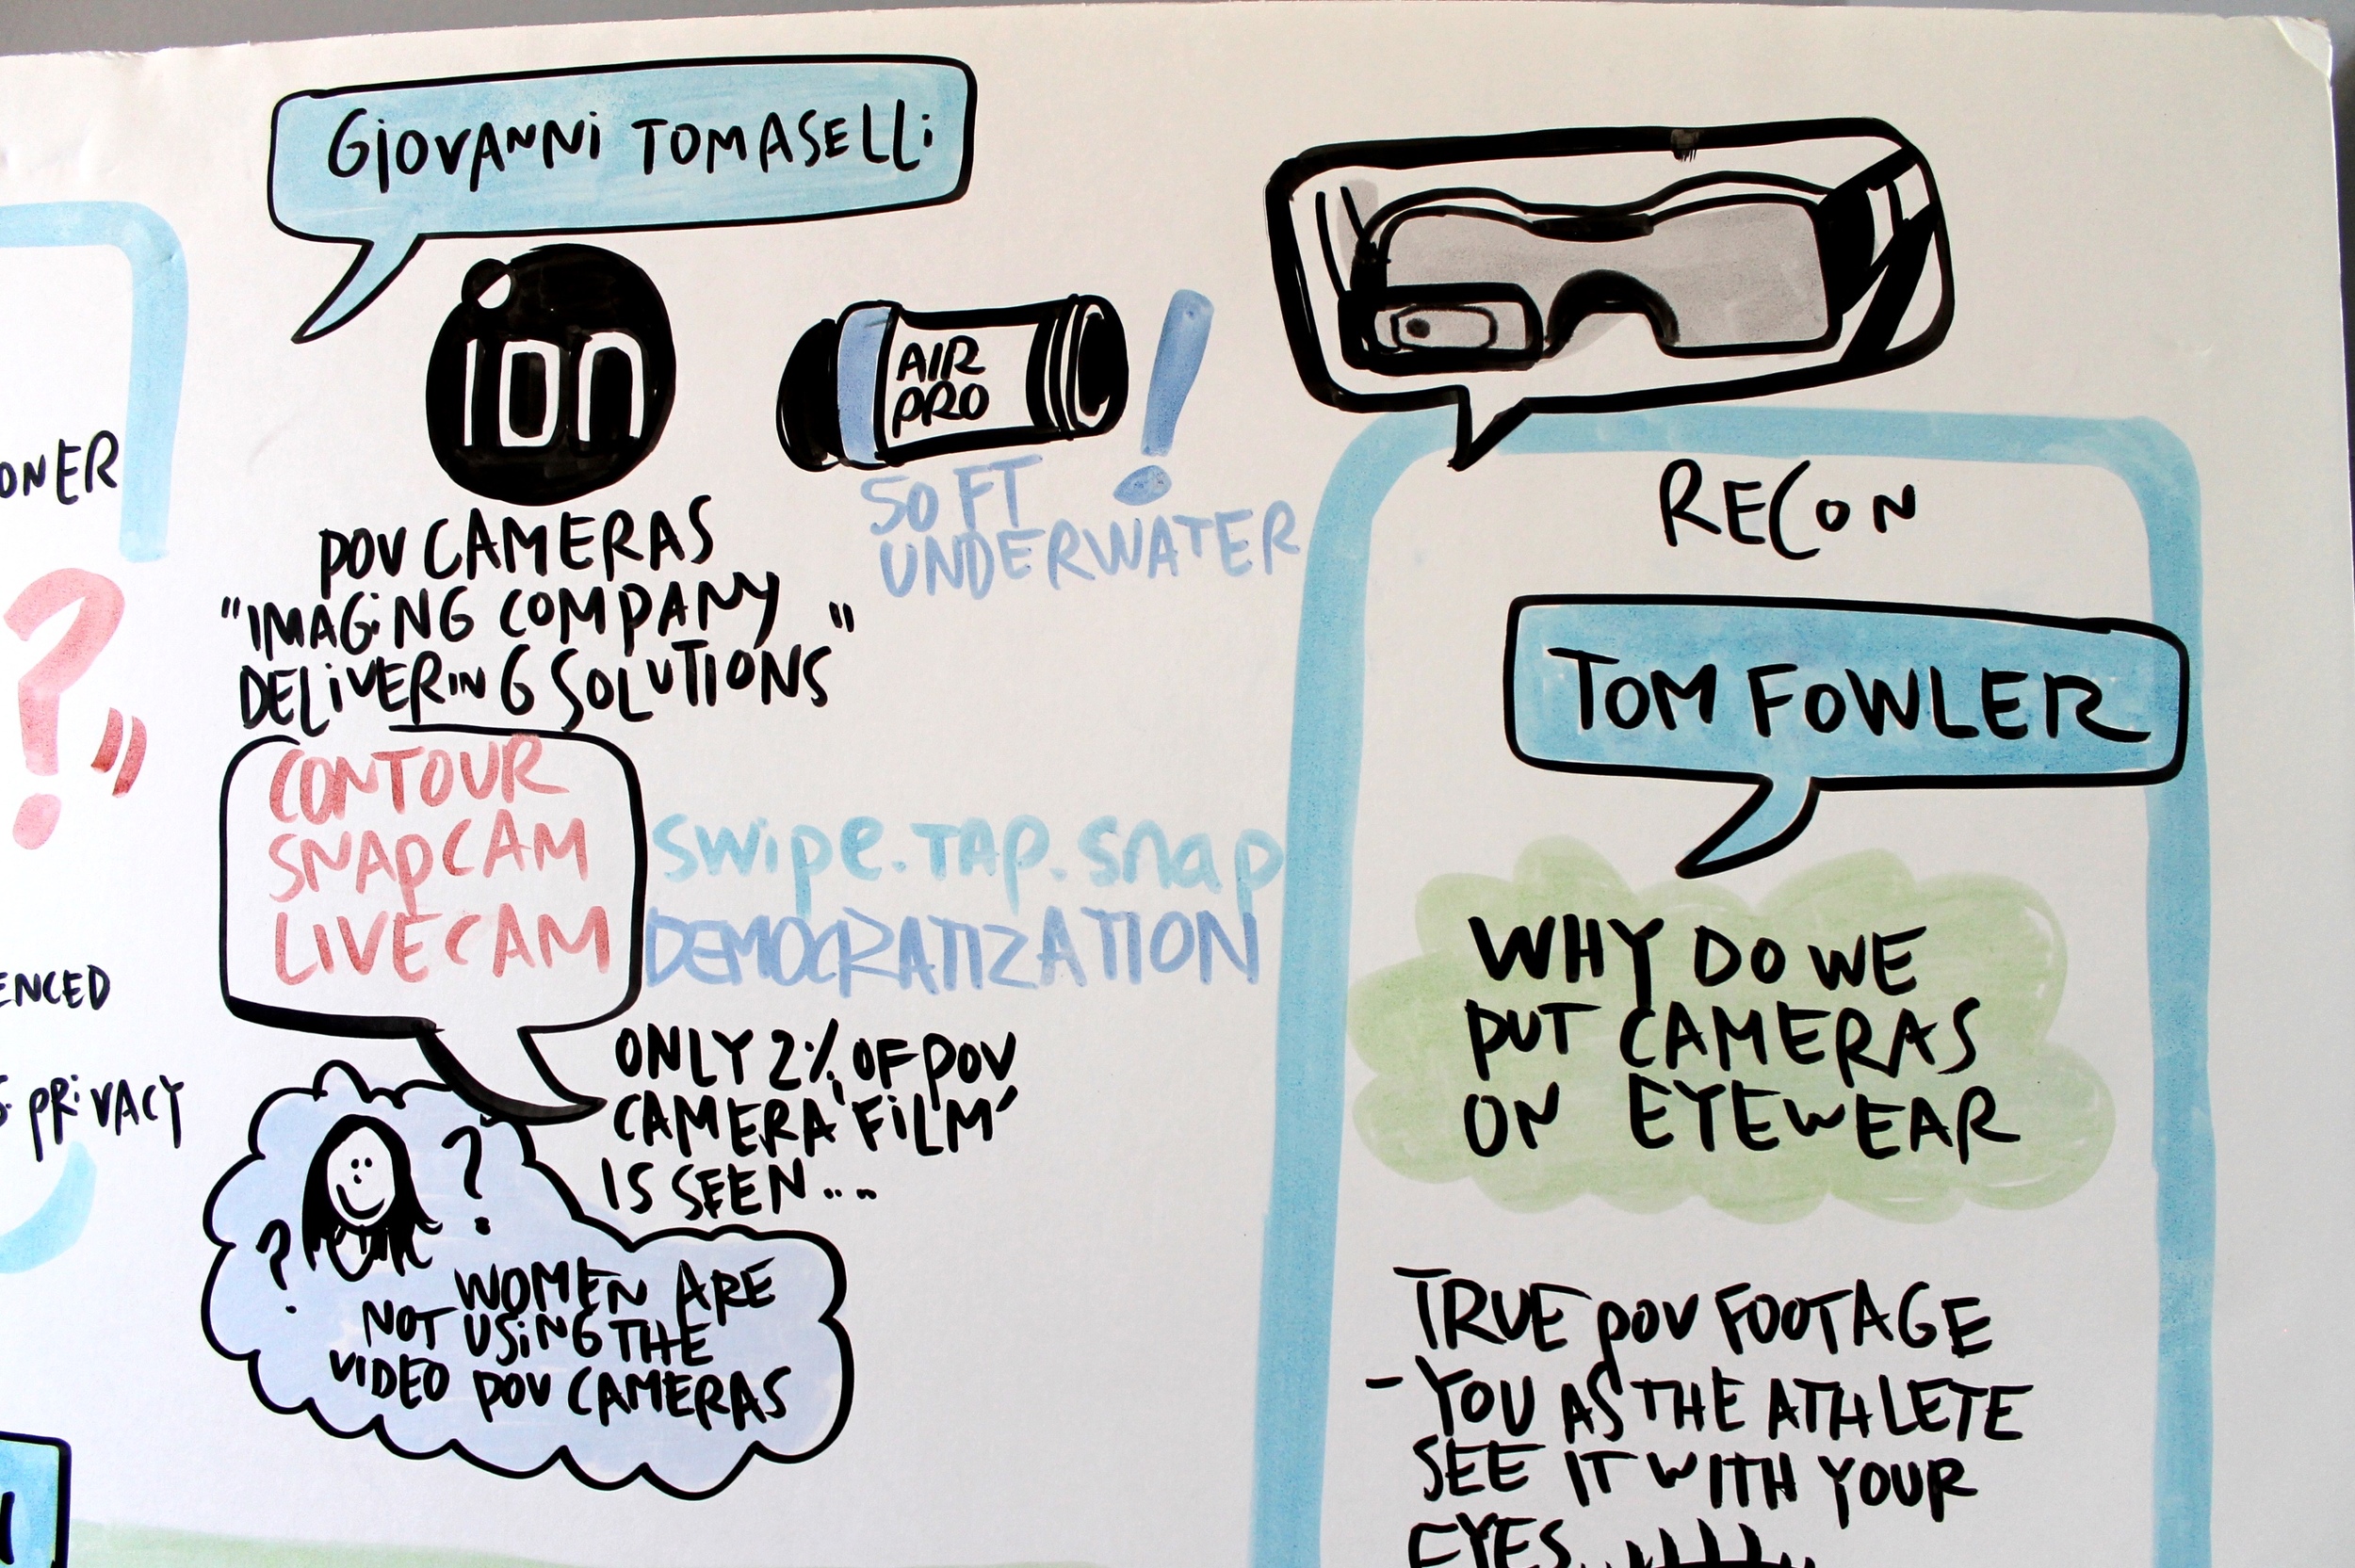 GIOVANNI TOMASELLI
ion
AIR
PRO
50 FT
UNDERWATER
POV CAMERAS
"IMAGING COMPANY
DELIVERING SOLUTIONS"
CONTOUR
SNAPCAM
LIVECAM
swipe.TAP.snap
DEMOCRATIZATION
ONLY 2% OF POV
CAMERA 'FILM'
IS SEEN...
? ?
WOMEN ARE
NOT USING THE
VIDEO POV CAMERAS
RECON
TOM FOWLER
WHY DO WE
PUT CAMERAS
ON EYEWEAR
TRUE POV FOOTAGE
- YOU AS THE ATHLETE
SEE IT WITH YOUR
EYES...
ONER
?"
ENCED
PRIVACY